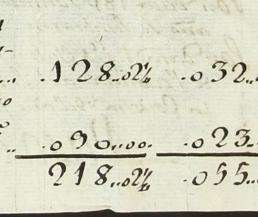 .128..02¼ .032..
.090..00. .023..
218..02¼ .055..